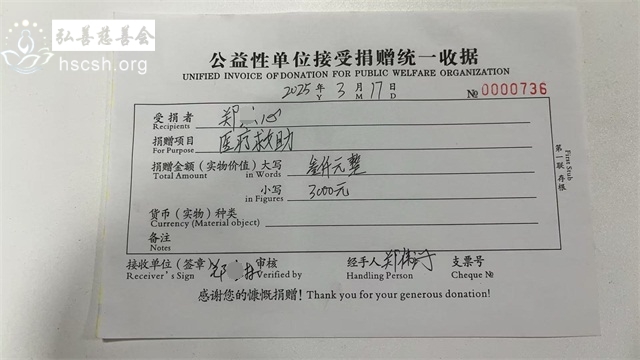 弘善慈善会
hscsh.org
公益性单位接受捐赠统一收据
UNIFIED INVOICE OF DONATION FOR PUBLIC WELFARE ORGANIZATION
2025年 3月 17日 № 0000736
Y M D
受捐者 郑
Recipients
捐赠项目 医疗救助
For Purpose
捐赠金额（实物价值）大写 叁仟元整
Total Amount in Words
小写 3000元
in Figures
货币（实物）种类
Currency (Material object)
备注
Notes
第一联 存根
First Stub
接收单位（签章） 审核 经手人 郑 支票号
Receiver's Sign Verified by Handling Person Cheque №
感谢您的慷慨捐赠！Thank you for your generous donation!